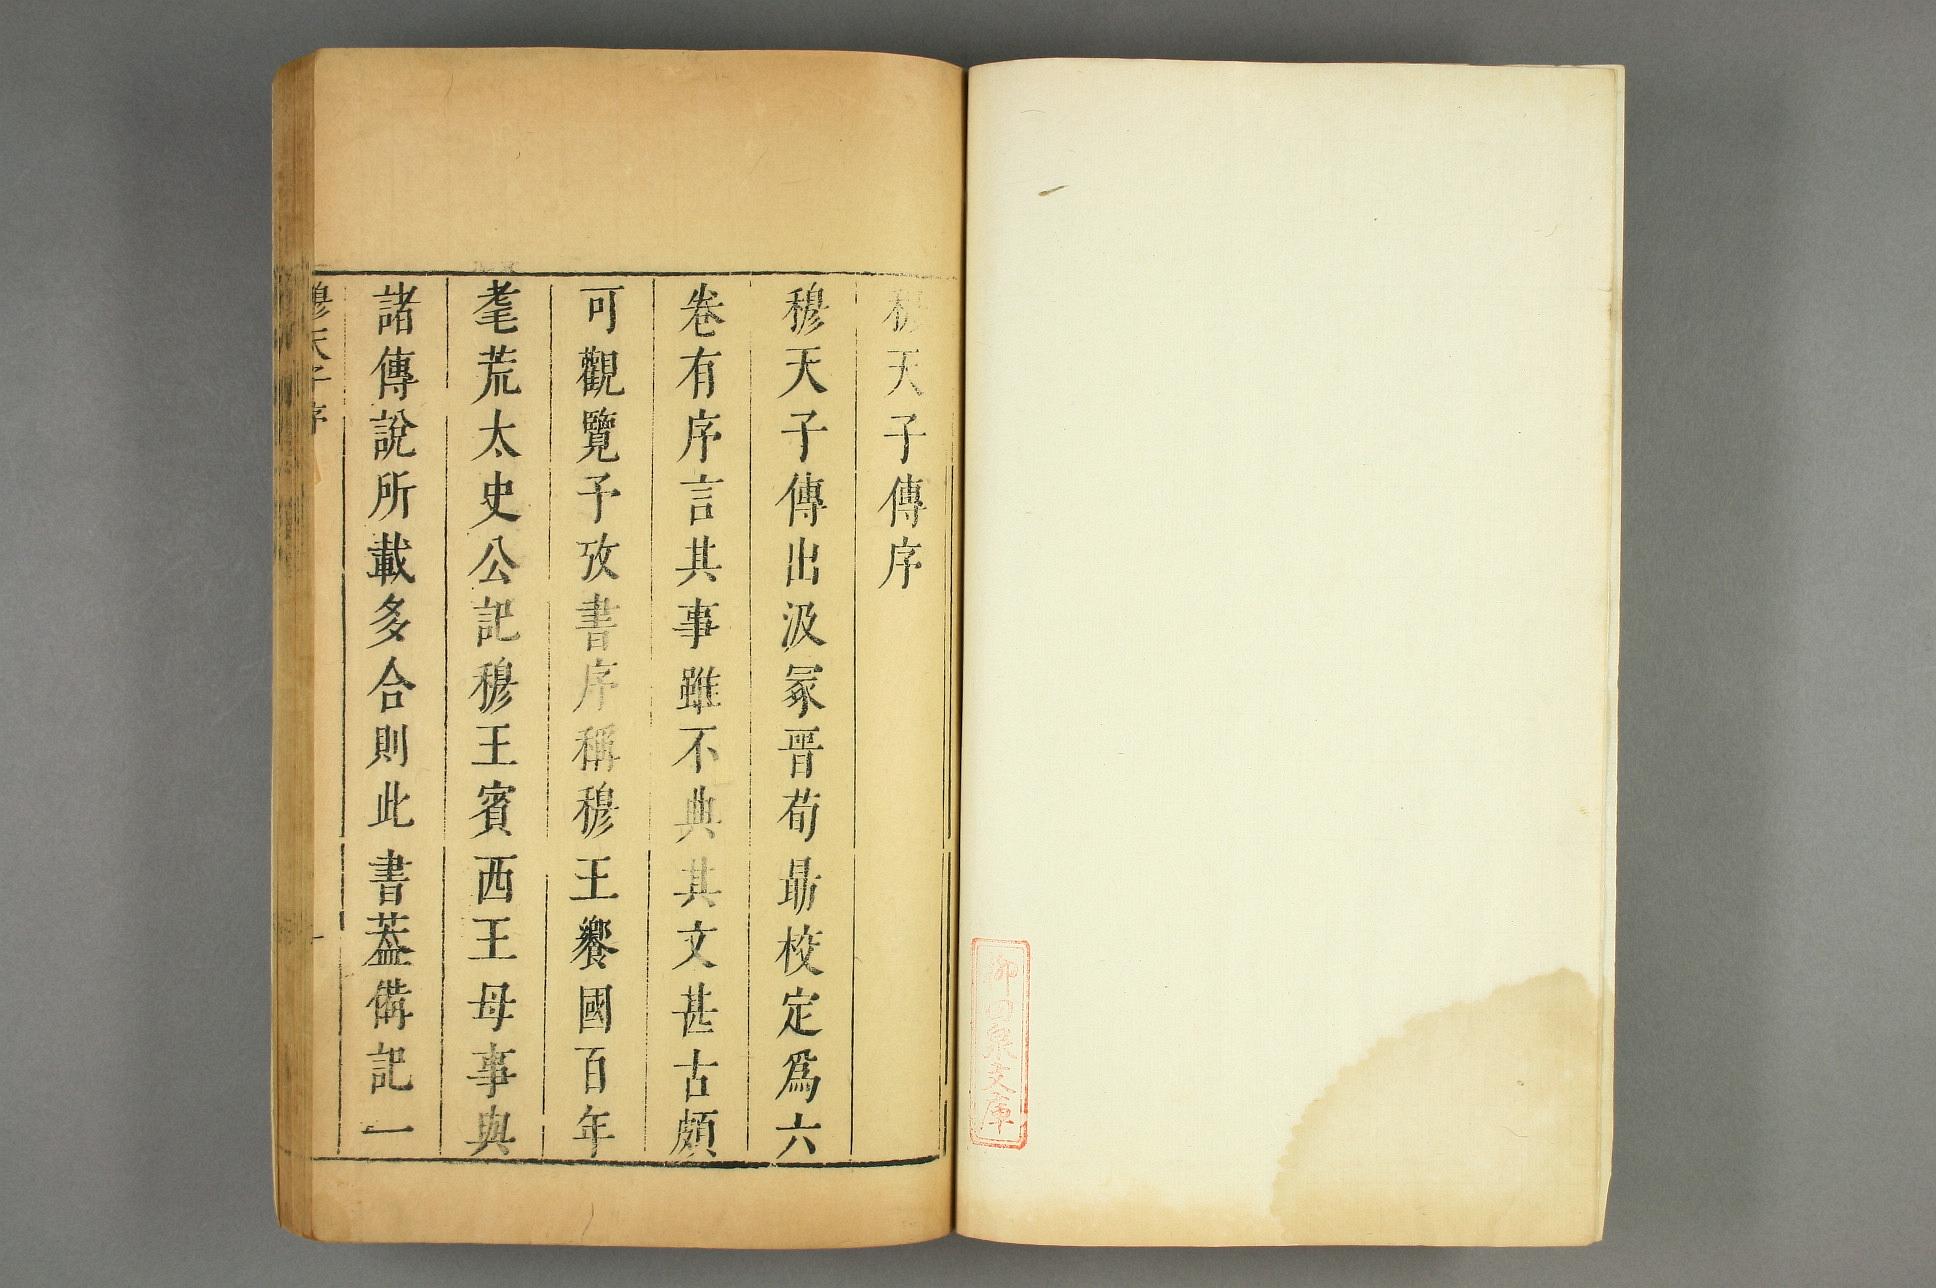 穆天子傳序
穆天子傳出汲冢晋荀勗校定爲六
卷有序言其事雖不典其文甚古頗
可觀覽予攷書序稱穆王饗國百年
耄荒太史公記穆王賓西王母事與
諸傳說所載多合則此書葢備記一
穆天子序
一
柳田泉文庫